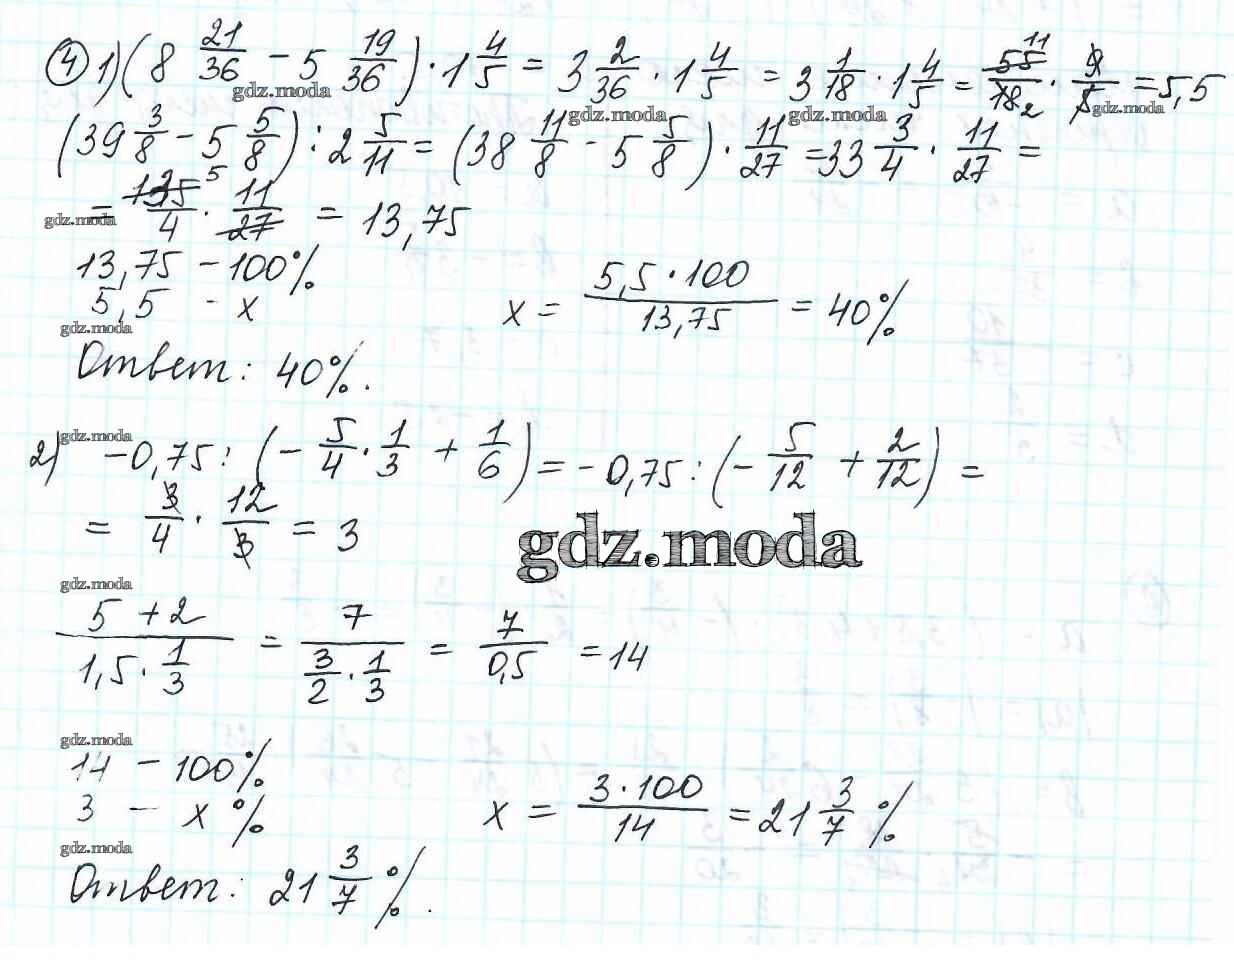 ④ 1) (8 21/36 − 5 19/36) · 1 4/5 = 3 2/36 · 1 4/5 = 3 1/18 · 1 4/5 = 55 11/18 2 · 9/5 = 5,5
gdz.moda gdz.moda gdz.moda gdz.moda
(39 3/8 − 5 5/8) : 2 5/11 = (38 11/8 − 5 5/8) · 11/27 = 33 3/4 · 11/27 =
= 135 5/4 · 11/27 = 13,75
gdz.moda
13,75 − 100%
5,5 − x x = 5,5 · 100/13,75 = 40%
gdz.moda
Ответ: 40%.
gdz.moda
2) −0,75 : (−5/4 · 1/3 + 1/6) = −0,75 : (−5/12 + 2/12) =
= 3/4 · 12/3 = 3
gdz.moda
gdz.moda
5 + 2/1,5 · 1/3 = 7/3/2 · 1/3 = 7/0,5 = 14
gdz.moda
14 − 100%
3 − x % x = 3 · 100/14 = 21 3/7 %
gdz.moda
Ответ: 21 3/7 %.